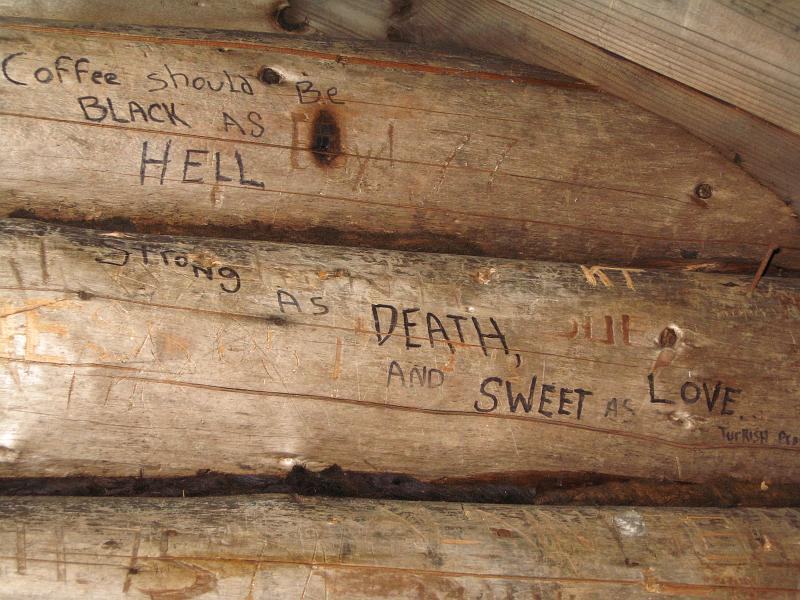 Coffee should Be
BLACK AS
HELL
77
Strong
AS DEATH,
KT
AND SWEET AS LOVE...
TURKISH